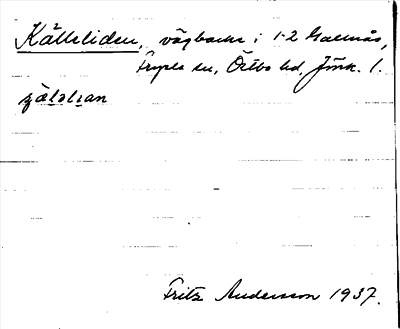 Källeliden, vägbacke i 1-2 Galtnås,
Fryele sn, Östbo hd, Jönk. l.
çälalian
Fritz Andersson 1937.